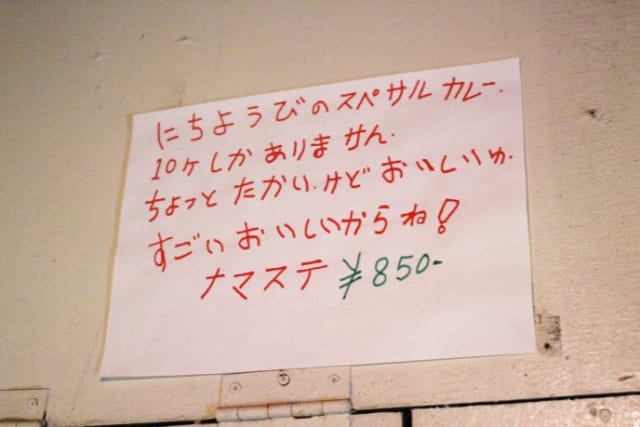 にちようびのスペサルカレー.
10ケしかありません.
ちょっとたかい.けどおいしいゅ.
すごいおいしいからね!
ナマステ ¥850-